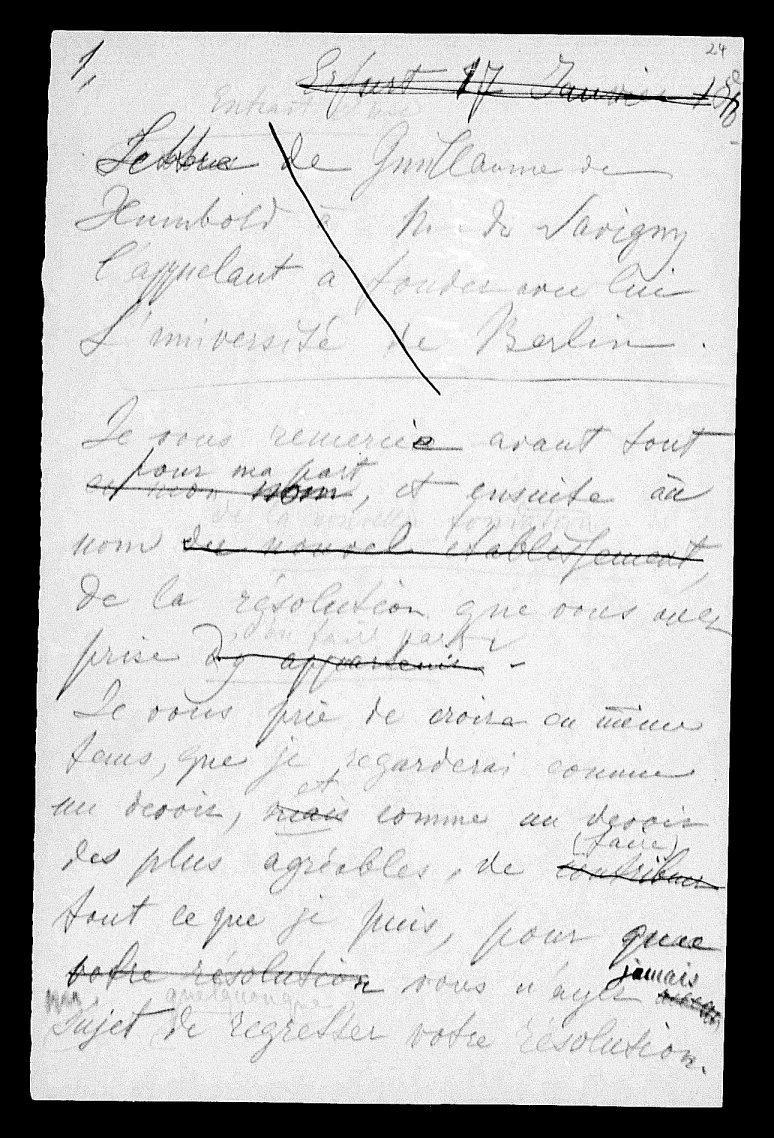 24
1,
Erfurt 17 Janvier 18
Extrait d'une
Lettre de Guillaume de
Humbold à M. de Savigny
l'appelant a fonder avec lui
L'université de Berlin.
Je vous remercie avant tout
pour ma part
en mon nom, et ensuite au
de la nouvelle fondation
nom du nouvel etablissement,
de la résolution que vous avez
d'en faire partie
prise d'y appartenir.
Je vous prie de croire en même
tems, que je regarderai comme
et
un devoir, mais comme un devoir
des plus agréables, de contribuer
(faire)
tout ce que je puis, pour que
votre résolution vous n'ayez jamais
quelconque
Sujet de regretter votre résolution.